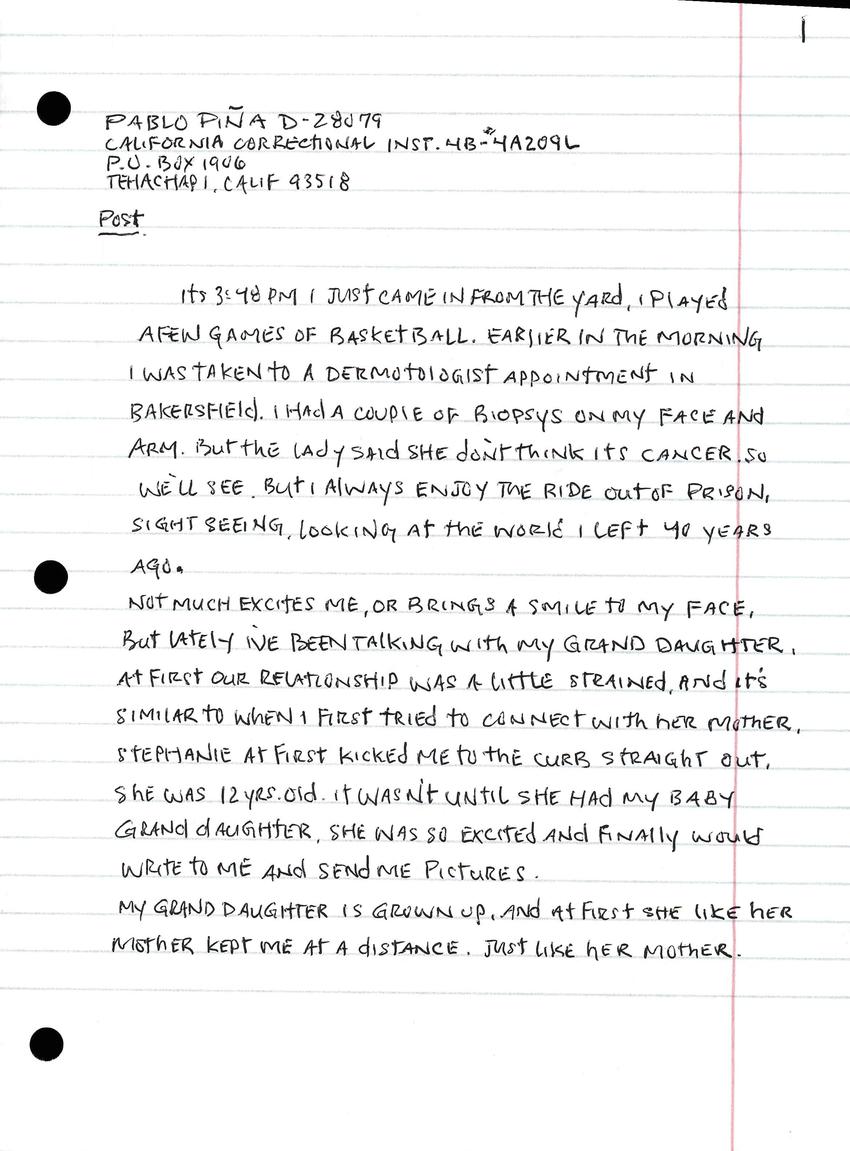 1
PABLO PIÑA D-28079
CALIFORNIA CORRECTIONAL INST. 4B-#4A209L
P.O. BOX 1906
TEHACHAPI, CALIF 93518
Post
Its 3:48 PM I JUST CAME IN FROM THE YARD, I PlAYEd
A FEW GAMES OF BASKETBALL. EARlIER IN THE MORNING
I WAS TAKEN TO A DERMOTOLOGIST APPOINTMENT IN
BAKERSFIEld. I HAd A COUPlE OF BIOPSYS ON MY FACE ANd
ARM. But the lAdY SAId SHE don't think ITS CANCER. SO
WE'LL SEE. But I AlWAYS ENJOY THE RIDE out OF PRISON,
SIGHT SEEING, looking AT the WORld I LEFT 40 YEARS
AGO.
NOT MUCH EXCITES ME, OR BRINGS A SMILE to MY FACE,
But lATEly I'VE BEEN TALKING With MY GRAND DAUGHTER.
At FIRST OUR RELATIONSHIP WAS A LITTLE STRAINED, ANd It's
SIMILAR TO WHEN I FIRST TRIED TO CONNECT WITH hER MOTHER,
STEPHANIE AT FIRST KICKED ME to the CURB STRAIGHT out.
She WAS 12 YRS. Old. It WASN't UNTIL SHE HAd MY BABY
GRANd dAUGHTER, SHE WAS SO EXCITEd ANd FINAlly would
WRITE TO ME ANd SENd ME PICTURES.
MY GRAND DAUGHTER IS GROWN UP, AND At FIRST SHE lIKE hER
MOTHER KEPT ME At A dISTANCE. JUST LIKE hER MOTHER.